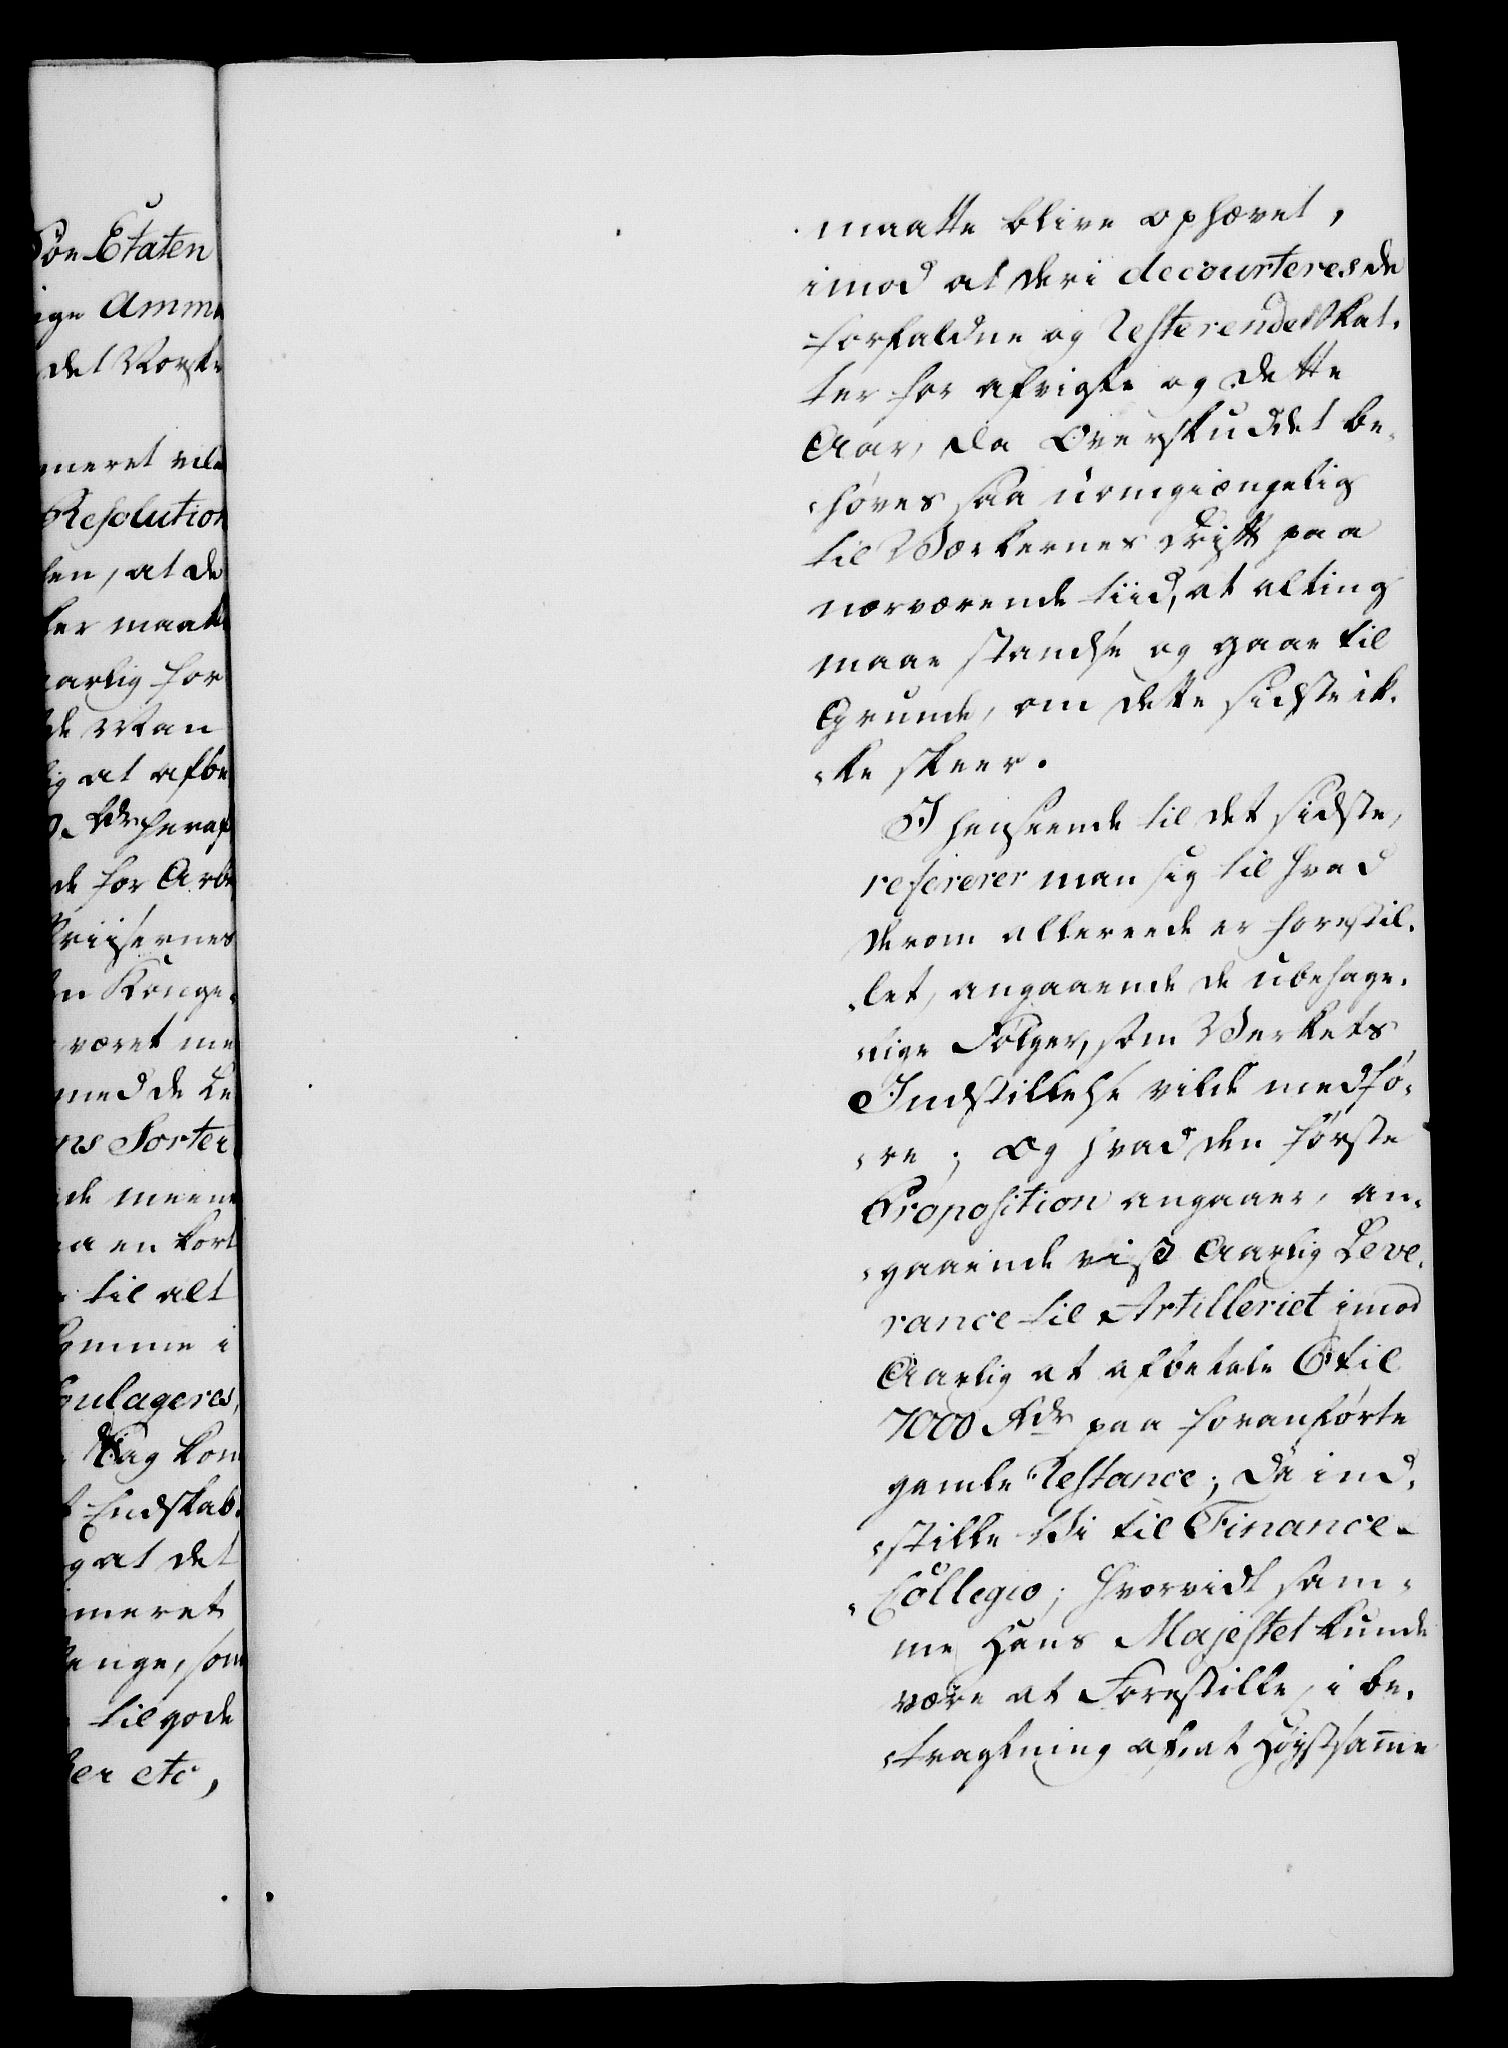 Söe-Etaten
ige Amme
det Norske
meret ville
Resolution
len, at de
ker maatte
aarlig for
de Man
lig at afbe
0 Rdr heraf
de for Arbe
Priisernes
en Konge-
været me
med de Le
ns Sorter
de meene
aa en kort
til alt
komme i
soulageres,
Dag kom
t Endskab.
g at det
meret
Penge, som
til gode
ker etc,
maatte blive ophævet,
imod at deri decourteres de
forfaldne og Resterende Skat-
ter for afvigte og dette
Aar, da Overskuddet be-
høves saa uomgiængelig
til Værkernes Drift paa
nærværende tiid, at alting
maae standse og gaae til
Grunde, om dette sidste ik-
ke skeer.
I henseende til det sidste,
refererer man sig til hvad
derom allereede er forestil-
let, angaaende de ubehage-
lige Følger, som Verkets
Indstillelse vilde medfø-
re; Og hvad den første
Proposition angaaer, an-
gaaende viss Aarlig Leve-
rance til Artilleriet imod
Aarlig at afbetale 6 til
7000 Rdr paa foranførte
gamle Restance; Da ind-
stille Vi til Finance-
Collegio; hvorvidt sam-
me Hans Majestet kunde
være at Forestille, i be-
tragtning af, at Høystsamme